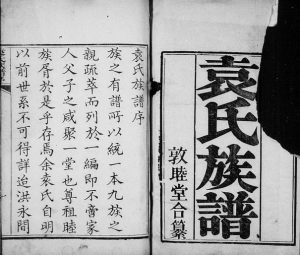 袁氏族譜
敦睦堂合纂
袁氏族譜序
族之有譜所以統一本九族之
親疏萃而列於一編即不啻家
人父子之咸聚一堂也尊祖睦
族胥於是乎存焉余袁氏自明
以前世系不可得詳追洪永間